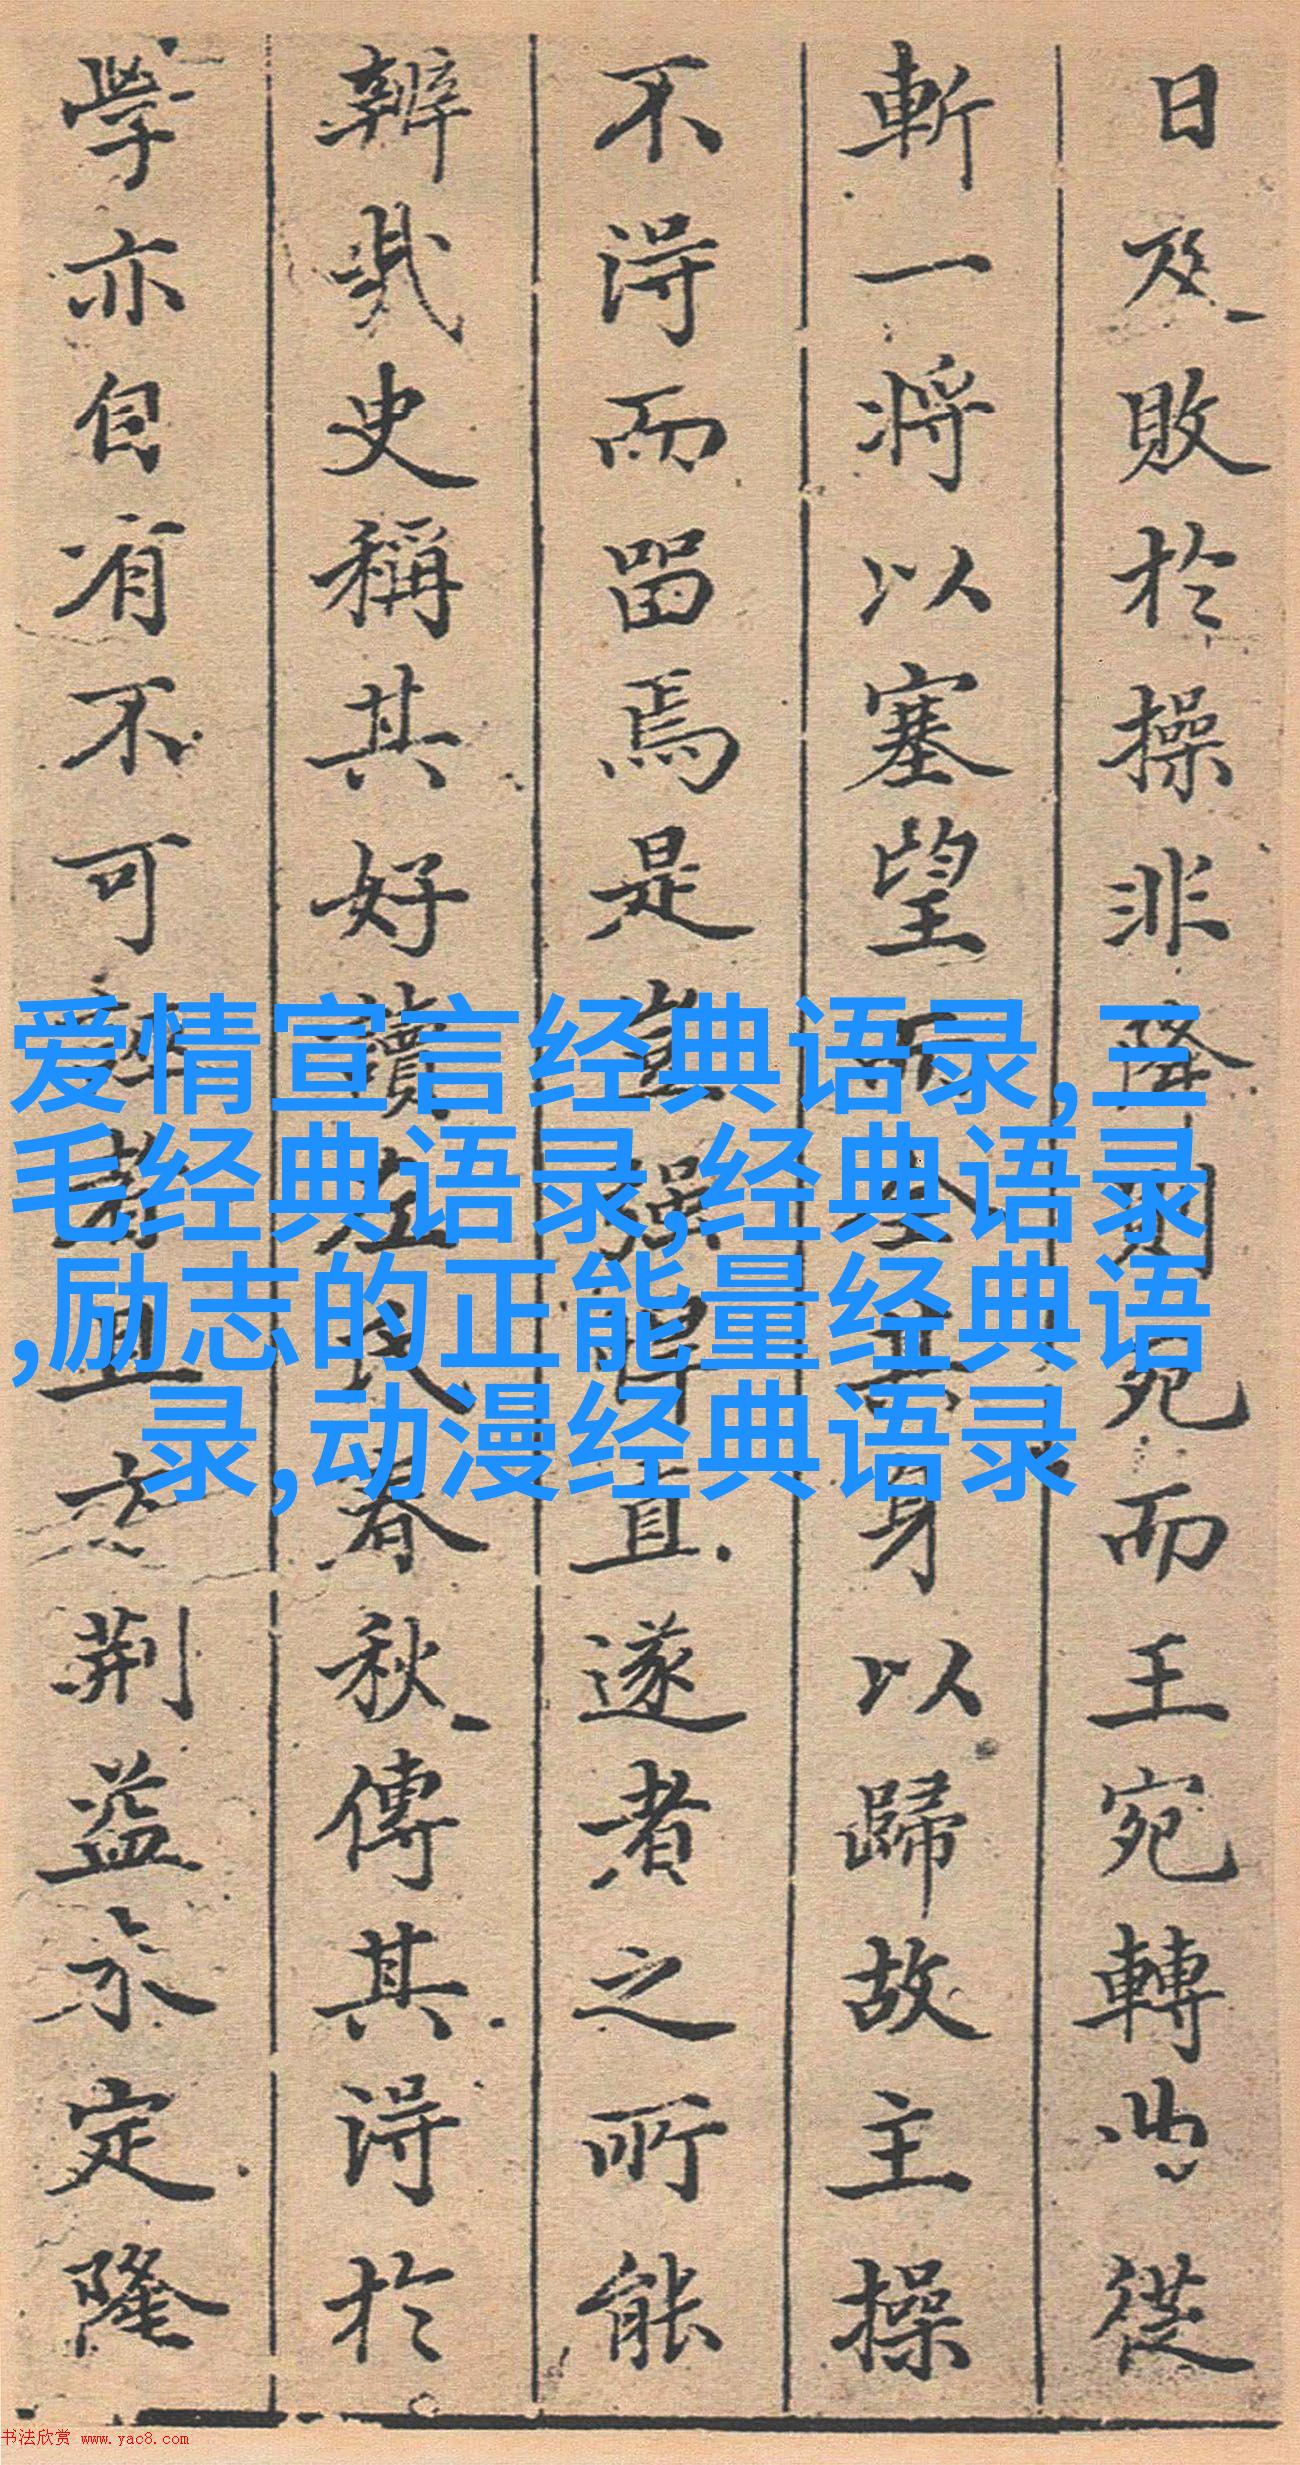 日及敗於操非降則宛而王宛轉曲從
斬一將以塞望而全身以歸故主操
不得而留焉是豈強悍直遂者之所能
辨哉史稱其好讀左氏春秋傳其得於
學亦自有不可誣者且立荆益未定隆
爱情宣言经典语录,三
毛经典语录,经典语录
,励志的正能量经典语
录,动漫经典语录
书法欣赏 www.yac8.com